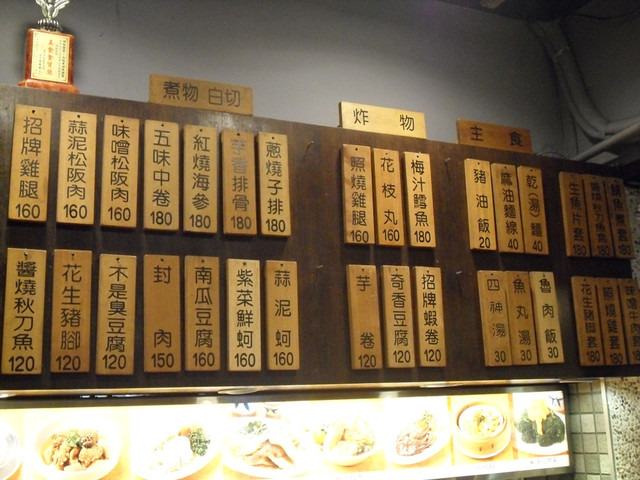 煮物 白切
炸物
主食
招牌雞腿 160
蒜泥松阪肉 160
味噌松阪肉 160
五味中卷 180
紅燒海參 180
芋香排骨 180
蔥燒子排 180
照燒雞腿 160
花枝丸 160
梅汁鱈魚 180
豬油飯 20
麻油麵線 40
乾(湯)麵 40
生魚片套 180
醬燒秋刀魚 120
花生豬腳 120
不是臭豆腐 120
封肉 150
南瓜豆腐 160
紫菜鮮蚵 160
蒜泥蚵 160
芋卷 120
奇香豆腐 120
招牌蝦卷 120
四神湯 30
魚丸湯 30
魯肉飯 30
花生豬腳套 180
照燒雞套 180